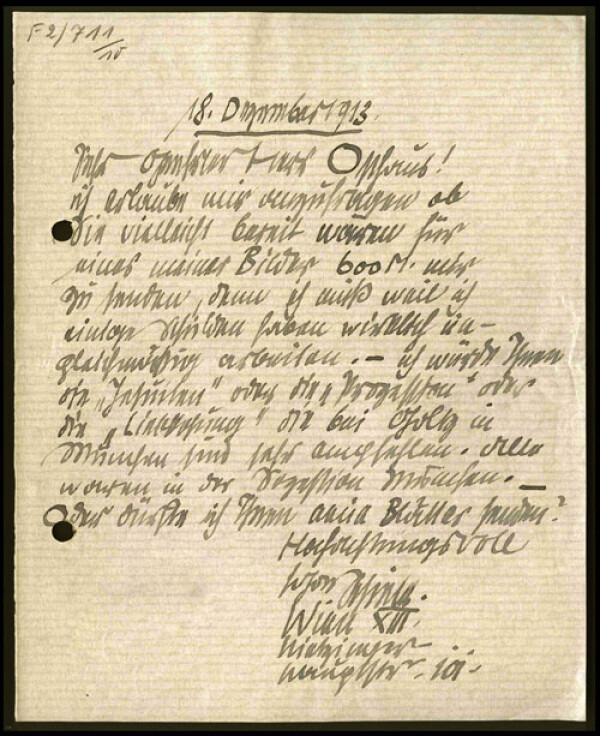 F2/711
/10
18. Dezember 1913.
Sehr geehrter Herr Osthaus!
ich erlaube mir anzufragen ob
Sie vielleicht bereit wären für
eines meiner Bilder 600 M. mir
zu senden, denn ich muß weil ich
einige Schulden haben wirklich un-
gleichmäßig arbeiten. — ich würde Ihnen
die „ " oder die „Prozession" oder
die „ " die bei Goltz in
München sind sehr empfehlen. alle
waren in der Sezession München. —
Oder dürfte ich Ihnen Blätter senden?
Hochachtungsvoll
Schiele.
Wien XIII.
Hietzinger
Hauptstr. 101.